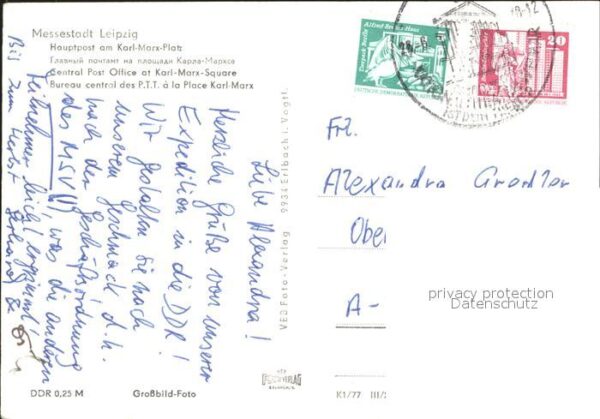 Messestadt Leipzig
Hauptpost am Karl-Marx-Platz
Главный почтамт на площади Карла-Маркса
Central Post Office at Karl-Marx-Square
Bureau central des P.T.T. à la Place Karl-Marx
Liebe Alexandra!
Herzliche Grüße von unserer
Expedition in die DDR!
Wir gestalten sie nach
unserem Geschmack d.h.
nach der Geschäftsordnung
des MSV(!), was die anderen
Teilnehmer nicht
Bis zum Herbst
Gerhard
VEB Foto-Verlag 9934 Erlbach i. Vogtl.
Alfred Brehm-Haus
Tierpark Berlin
DEUTSCHE DEMOKRATISCHE REPUBLIK
20
-8.-12
Frl.
Alexandra
Ober
A-
privacy protection
Datenschutz
DDR 0,25 M
Großbild-Foto
K1/77 III/